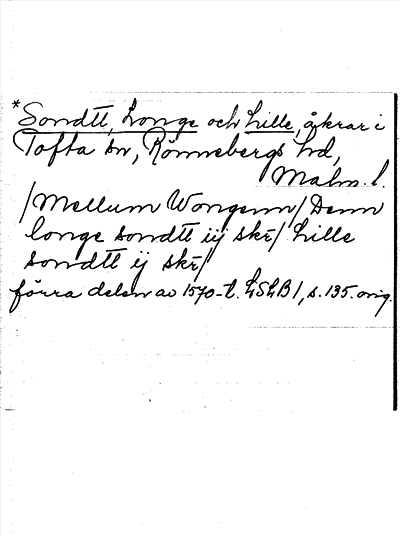 *Sondtt, Longe och Lille, åkrar i
Tofta sn, Rönnebergs hd,
Malm. l.
/Mellum Wongenn/ Denn
longe sondtt iij skr̄/ Lille
sondtt ij skr̄/
förra delen av 1570-t. LSLB 1, s. 135. orig.